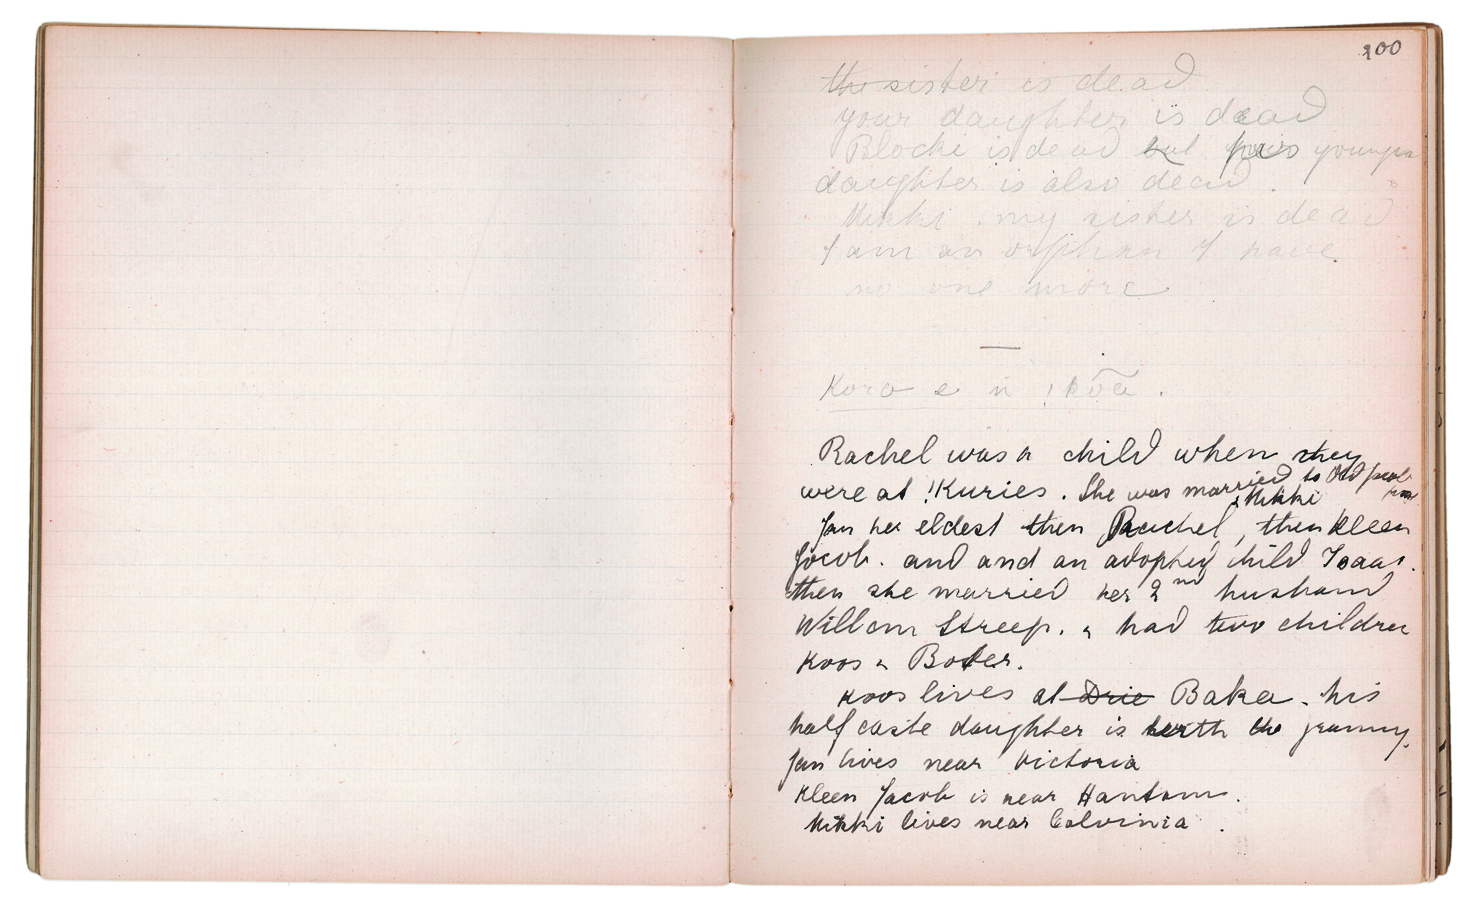 100
the sister is dead
your daughter is dead
Blocke is dead but  younger
daughter is also dead.
Mikki my sister is dead
I am an orphan I have
no one more
—
Rachel was a child when they
were at !Kuries. She was married to Old
Mikki
Jan her eldest then Rachel, then Kleen
Jacob. and and an adopted child Isaac.
then she married her 2nd husband
Willem Streep. & had two children
Koos & Boter.
Koos lives at Drie Baka. his
half caste daughter is with the granny.
Jan lives near Victoria
Kleen Jacob is near Hantam.
Mikki lives near Calvinia.